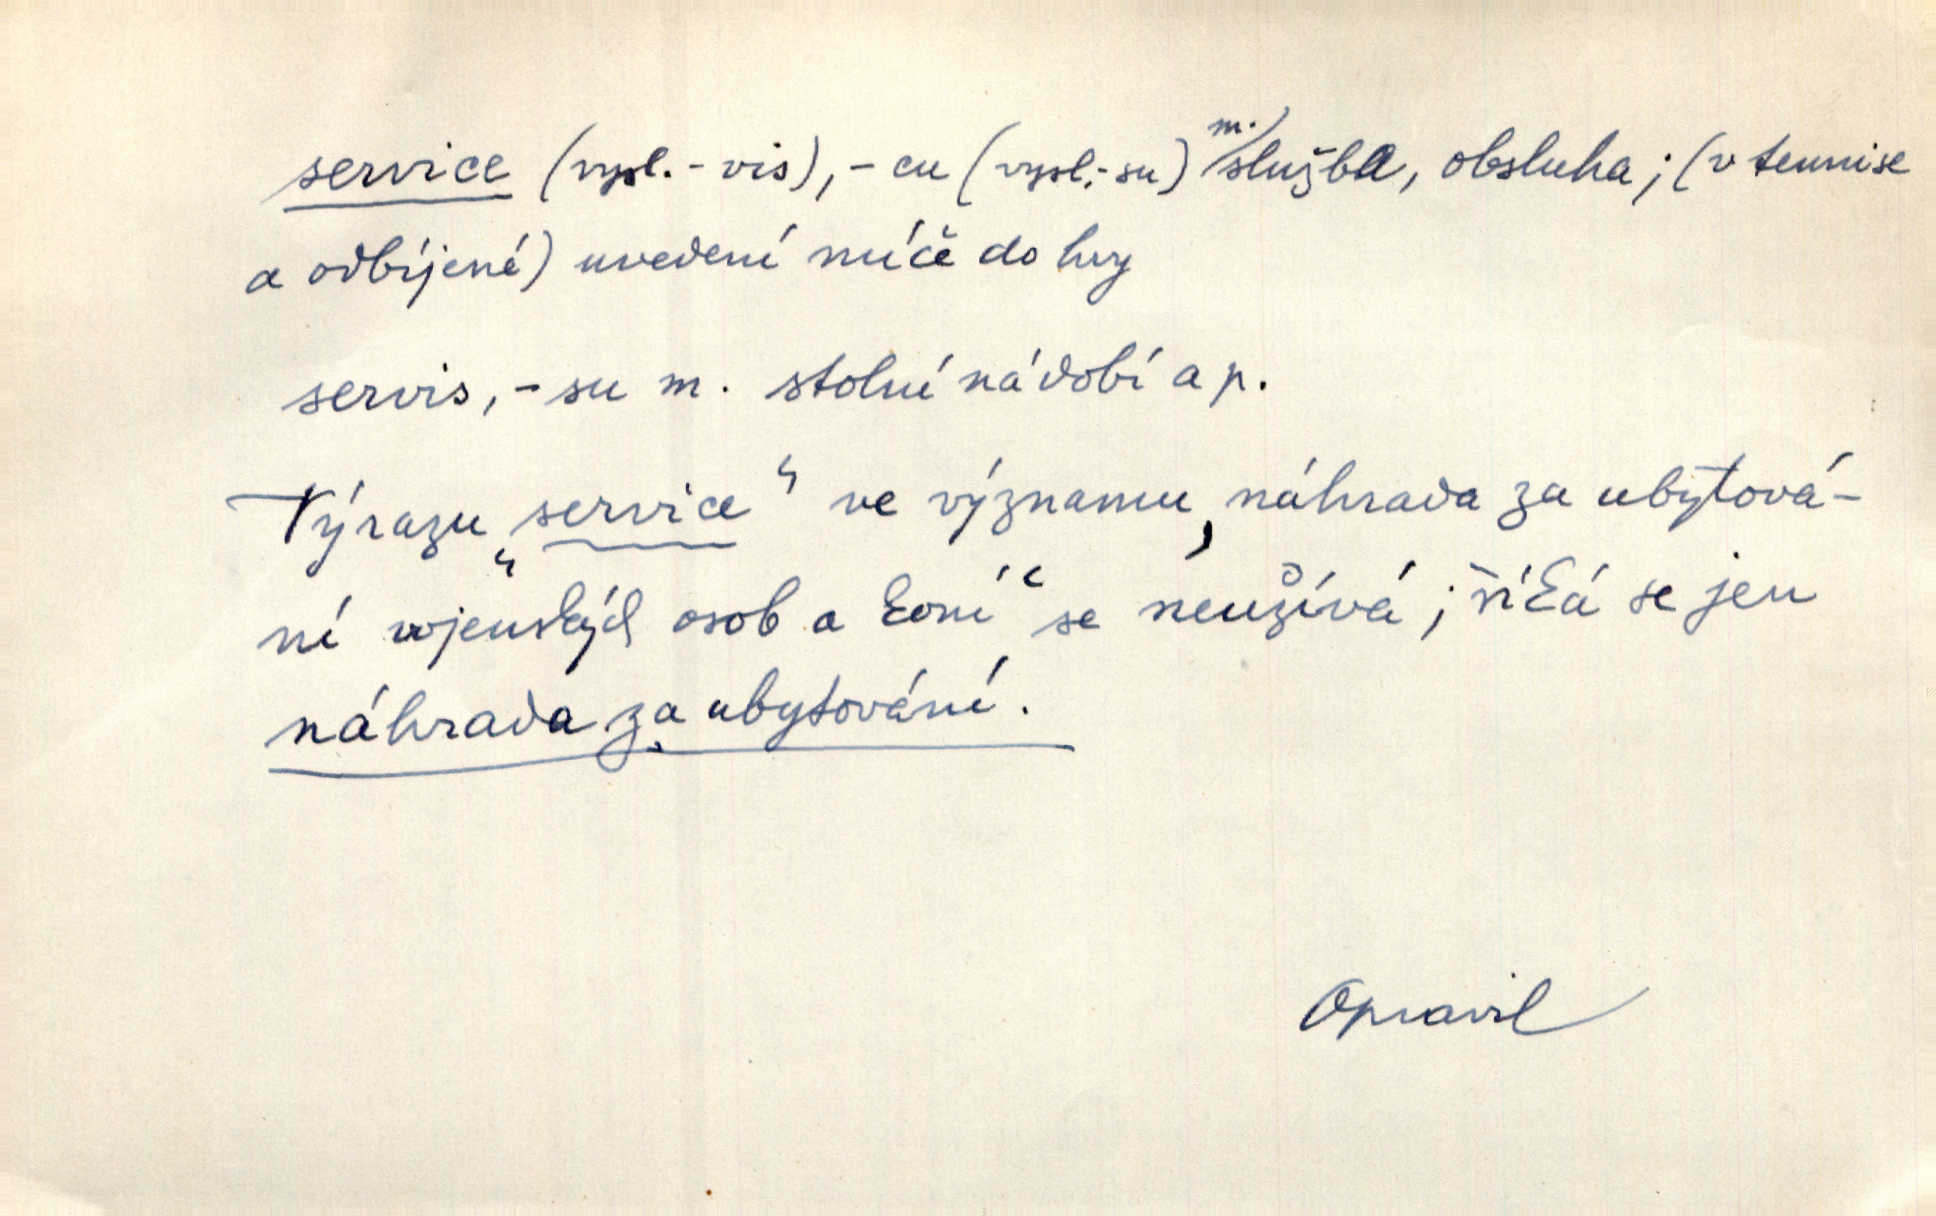 service (vysl. -vis), -cu (vysl. -su) m. služba, obsluha; (v tennise
a odbíjené) uvedení míče do hry
servis, -su m. stolní nádobí a p.
Výrazu „service“ ve významu ‚náhrada za ubytová-
ní vojenských osob a koní‘ se neužívá; říká se jen
náhrada za ubytování.
Opravil